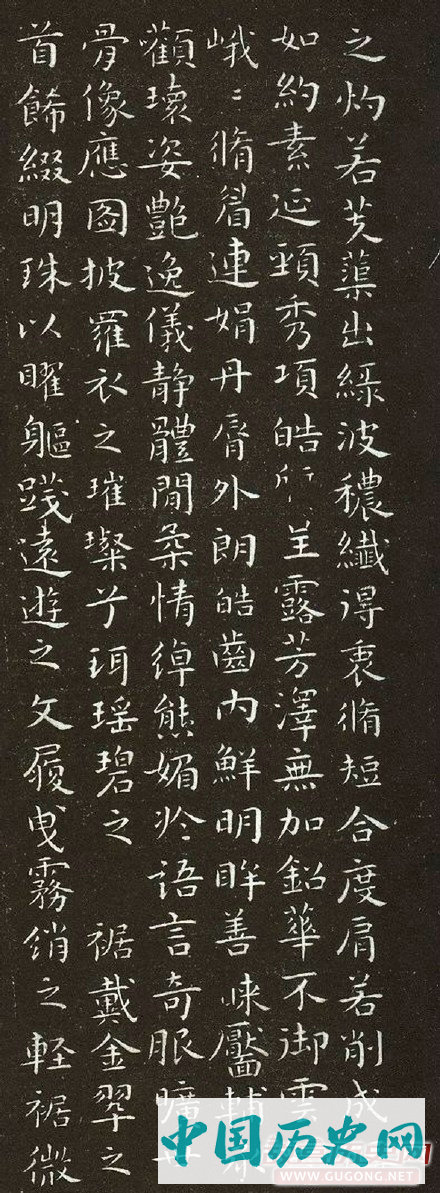 之灼若芙蕖出綠波穠纖得衷脩短合度肩若削成
如約素延頸秀項皓呈露芳澤無加鉛華不御雲
峨〻脩眉連娟丹脣外朗皓齒內鮮明眸善睞靨輔
顴瓌姿艷逸儀靜體閒柔情綽態媚於語言奇服曠
骨像應圖披羅衣之璀璨兮珥瑤碧之 裾戴金翠之
首飾綴明珠以曜軀踐遠遊之文履曳霧綃之軽裾微
中国历史网
WWW.GUGONG.NET